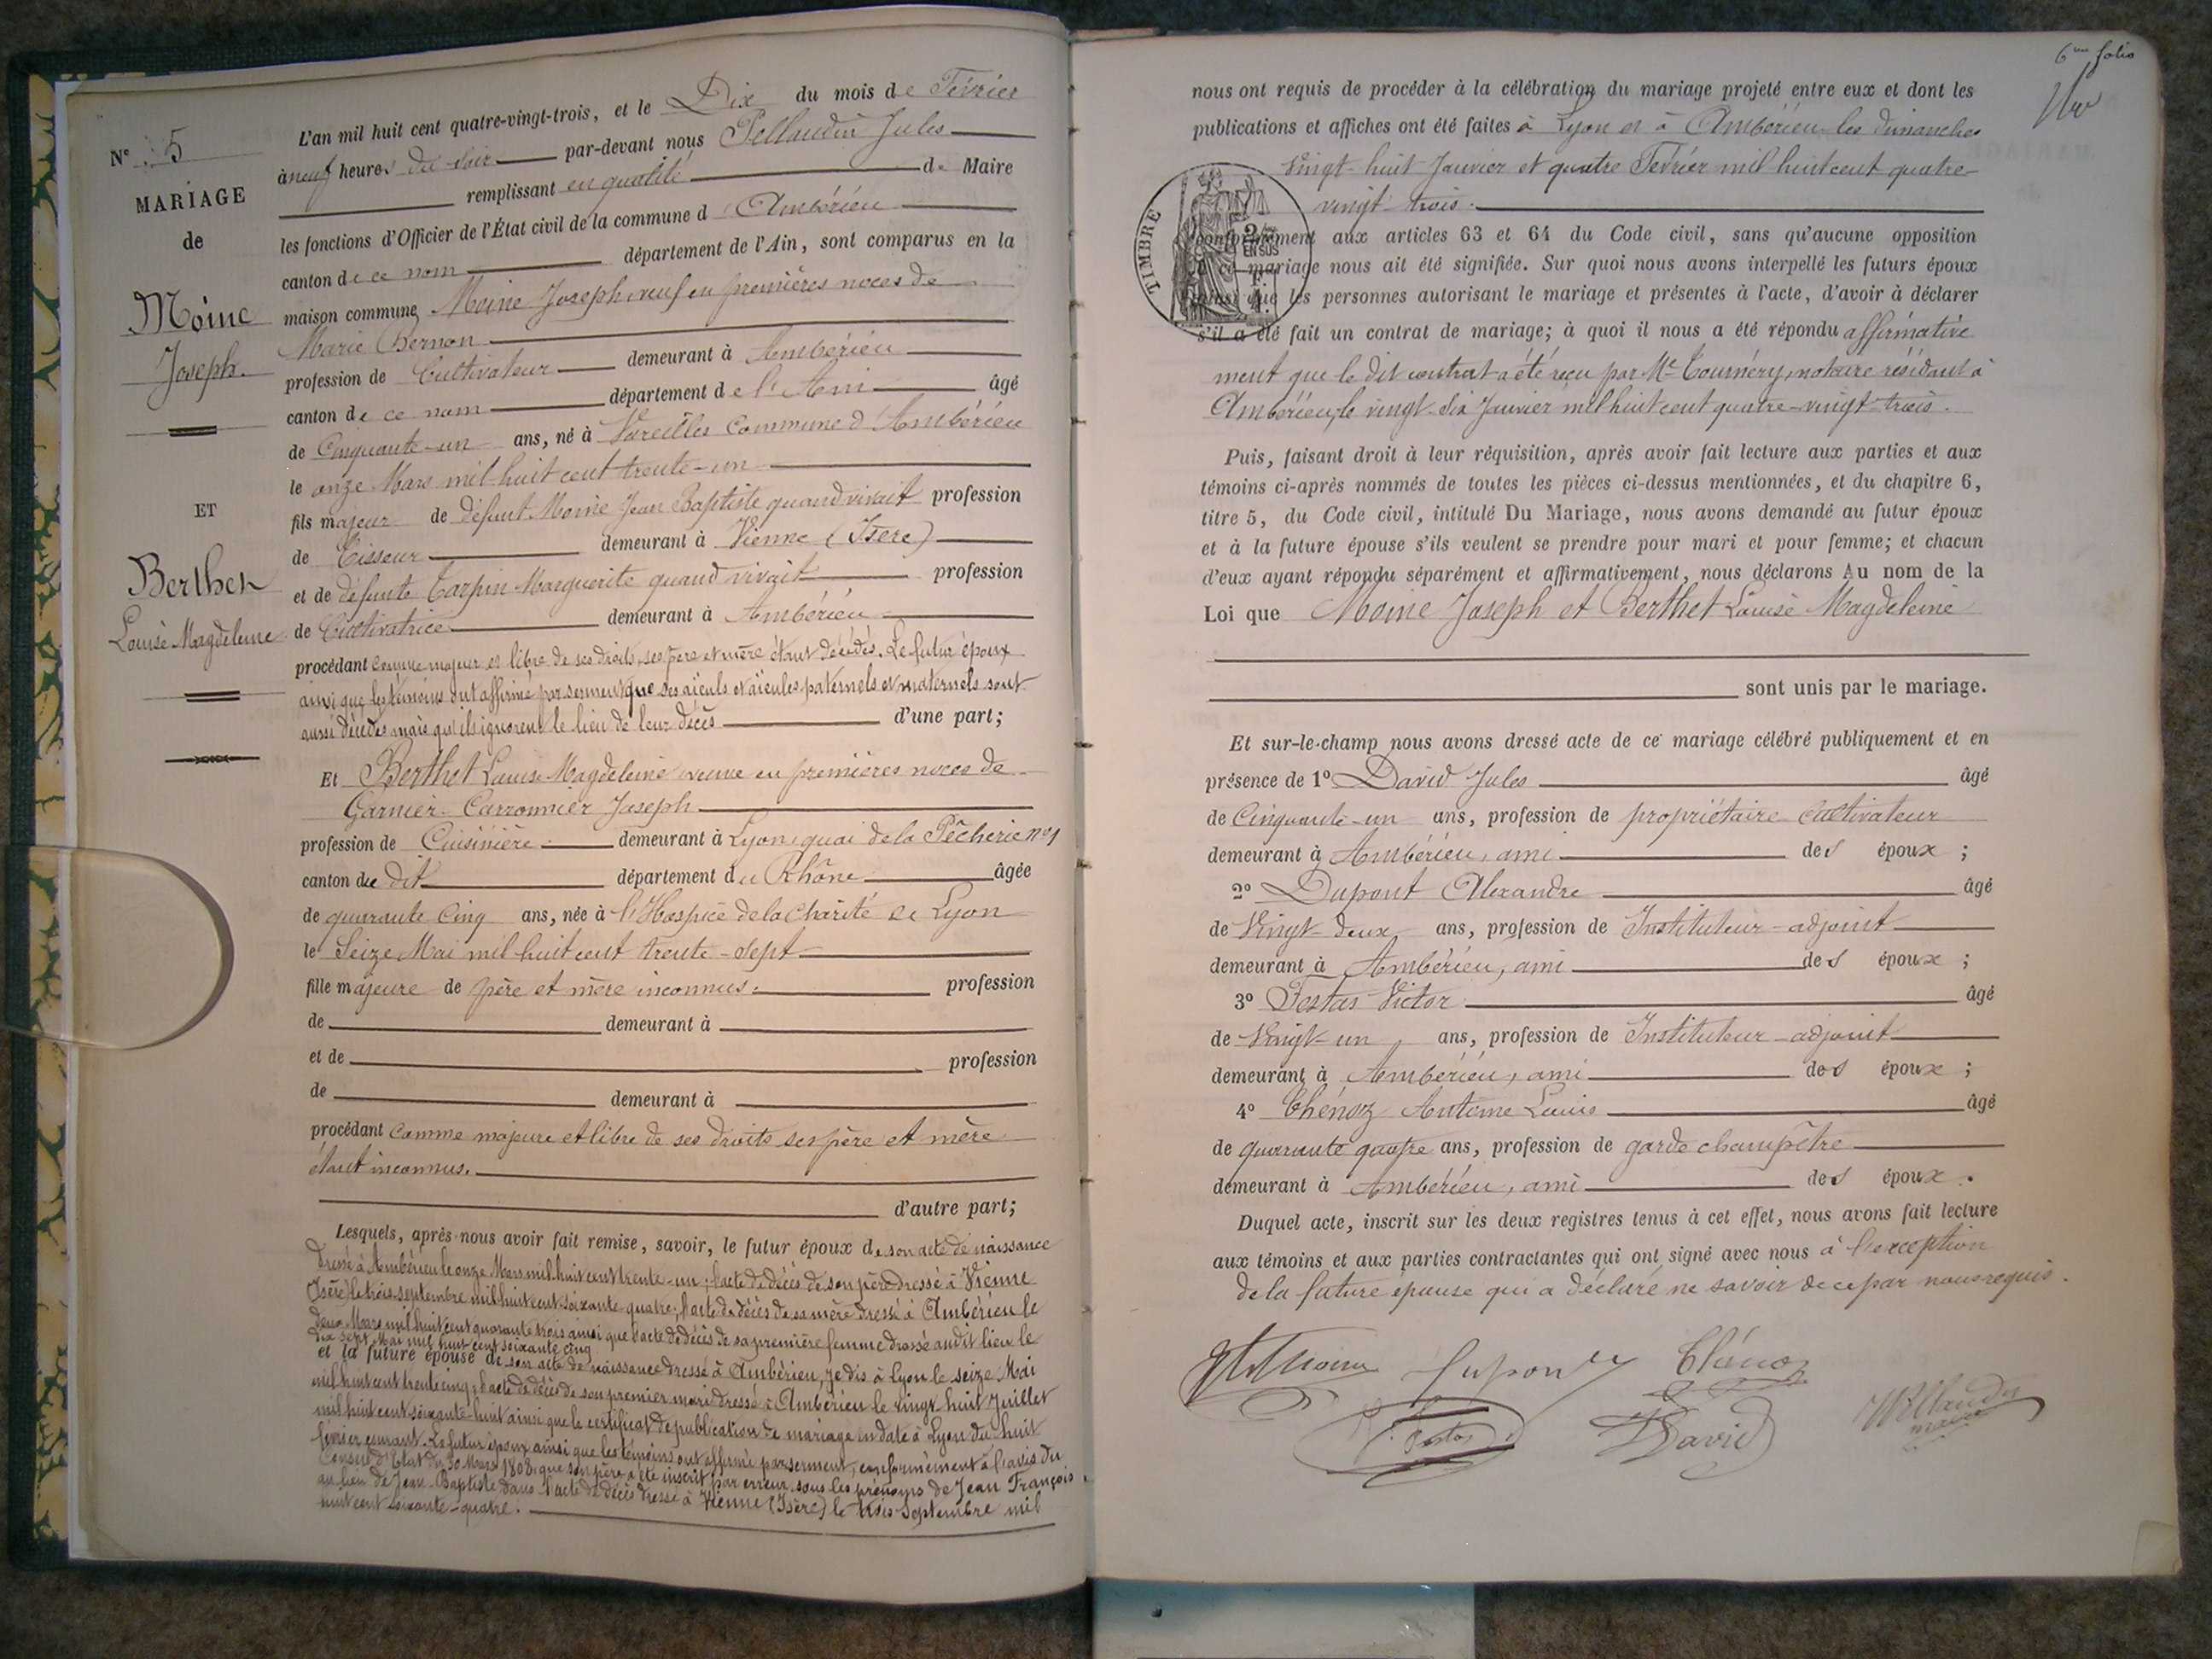 N° 5
MARIAGE
de
Moine
Joseph.
ET
Berthet
Louise Magdeleine
L'an mil huit cent quatre-vingt-trois, et le Dix du mois de Février
à neuf heures du soir par-devant nous Pellaudin Jules
remplissant en qualité de Maire
les fonctions d'Officier de l'État civil de la commune d'Ambérieu
canton de ce nom département de l'Ain, sont comparus en la
maison commune Moine Joseph, veuf en premières noces de
Marie Bernon
profession de Cultivateur demeurant à Ambérieu
canton de ce nom département de l'Ain âgé
de Cinquante-un ans, né à Vareilles Commune d'Ambérieu
le onze Mars mil huit cent trente-un
fils majeur de défunt Moine Jean Baptiste quand vivait profession
de Tisseur demeurant à Vienne (Isère)
et de défunte Carpin Marguerite quand vivait profession
de Cultivatrice demeurant à Ambérieu
procédant comme majeur et libre de ses droits, ses père et mère étant décédés. Le futur époux
ainsi que les témoins ont affirmé par serment que ses aïeuls et aïeules paternels et maternels sont
aussi décédés mais qu'ils ignorent le lieu de leur décès d'une part;
Et Berthet Louise Magdeleine veuve en premières noces de
Garnier-Carronnier Joseph
profession de Cuisinière demeurant à Lyon, quai de la Pêcherie n° 1
canton du dit département du Rhône âgée
de quarante cinq ans, née à l'Hospice de la Charité de Lyon
le Seize Mai mil huit cent trente-sept
fille majeure de père et mère inconnus. profession
de demeurant à
et de profession
de demeurant à
procédant comme majeure et libre de ses droits ses père et mère
étant inconnus.
d'autre part;
Lesquels, après nous avoir fait remise, savoir, le futur époux de son acte de naissance
dressé à Ambérieu le onze Mars mil huit cent trente-un; l'acte de décès de son père dressé à Vienne
(Isère) le trois septembre mil huit cent soixante quatre; l'acte de décès de sa mère dressé à Ambérieu le
deux Mars mil huit cent quarante trois ainsi que l'acte de décès de sa première femme dressé audit lieu le
dix sept Mai mil huit cent soixante cinq
et la future épouse de son acte de naissance dressé à Ambérieu, je dis à Lyon le seize Mai
mil huit cent trente cinq; l'acte de décès de son premier mari dressé à Ambérieu le vingt huit Juillet
mil huit cent soixante-huit ainsi que le certificat de publication de mariage en date à Lyon du huit
février courant. Le futur époux ainsi que les témoins ont affirmé par serment, conformément à l'avis du
Conseil d'Etat du 30 Mars 1808, que son père a été inscrit par erreur sous les prénoms de Jean François
au lieu de Jean-Baptiste dans l'acte de décès dressé à Vienne (Isère) le trois Septembre mil
huit cent soixante-quatre.
6me folio
nous ont requis de procéder à la célébration du mariage projeté entre eux et dont les
publications et affiches ont été faites à Lyon et à Ambérieu les dimanches
vingt-huit Janvier et quatre Février mil huit cent quatre-
vingt-trois.
TIMBRE
conformément aux articles 63 et 64 du Code civil, sans qu'aucune opposition
à ce mariage nous ait été signifiée. Sur quoi nous avons interpellé les futurs époux
ainsi que les personnes autorisant le mariage et présentes à l'acte, d'avoir à déclarer
s'il a été fait un contrat de mariage; à quoi il nous a été répondu affirmative
ment que le dit contrat a été reçu par Me Tournéry, notaire résidant à
Ambérieu, le vingt-six Janvier mil huit cent quatre-vingt-trois.
Puis, faisant droit à leur réquisition, après avoir fait lecture aux parties et aux
témoins ci-après nommés de toutes les pièces ci-dessus mentionnées, et du chapitre 6,
titre 5, du Code civil, intitulé Du Mariage, nous avons demandé au futur époux
et à la future épouse s'ils veulent se prendre pour mari et pour femme; et chacun
d'eux ayant répondu séparément et affirmativement, nous déclarons Au nom de la
Loi que Moine Joseph et Berthet Louise Magdeleine
sont unis par le mariage.
Et sur-le-champ nous avons dressé acte de ce mariage célébré publiquement et en
présence de 1° David Jules âgé
de Cinquante-un ans, profession de propriétaire Cultivateur
demeurant à Ambérieu, ami des époux ;
2° Dupont Alexandre âgé
de Vingt-deux ans, profession de Instituteur-adjoint
demeurant à Ambérieu, ami des époux ;
3° Festas Victor âgé
de Vingt-un ans, profession de Instituteur-adjoint
demeurant à Ambérieu, ami des époux ;
4° Chénoz Antoine Louis âgé
de quarante quatre ans, profession de garde champêtre
demeurant à Ambérieu, ami des époux.
Duquel acte, inscrit sur les deux registres tenus à cet effet, nous avons fait lecture
aux témoins et aux parties contractantes qui ont signé avec nous à l'exception
de la future épouse qui a déclaré ne savoir de ce par nous requis.
Moine Dupont Chénoz
Festas David Pellaudin
maire